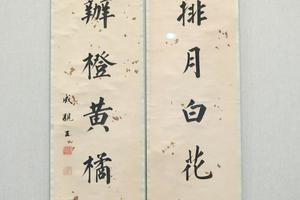 排月白花
辦橙黄橘
成親王